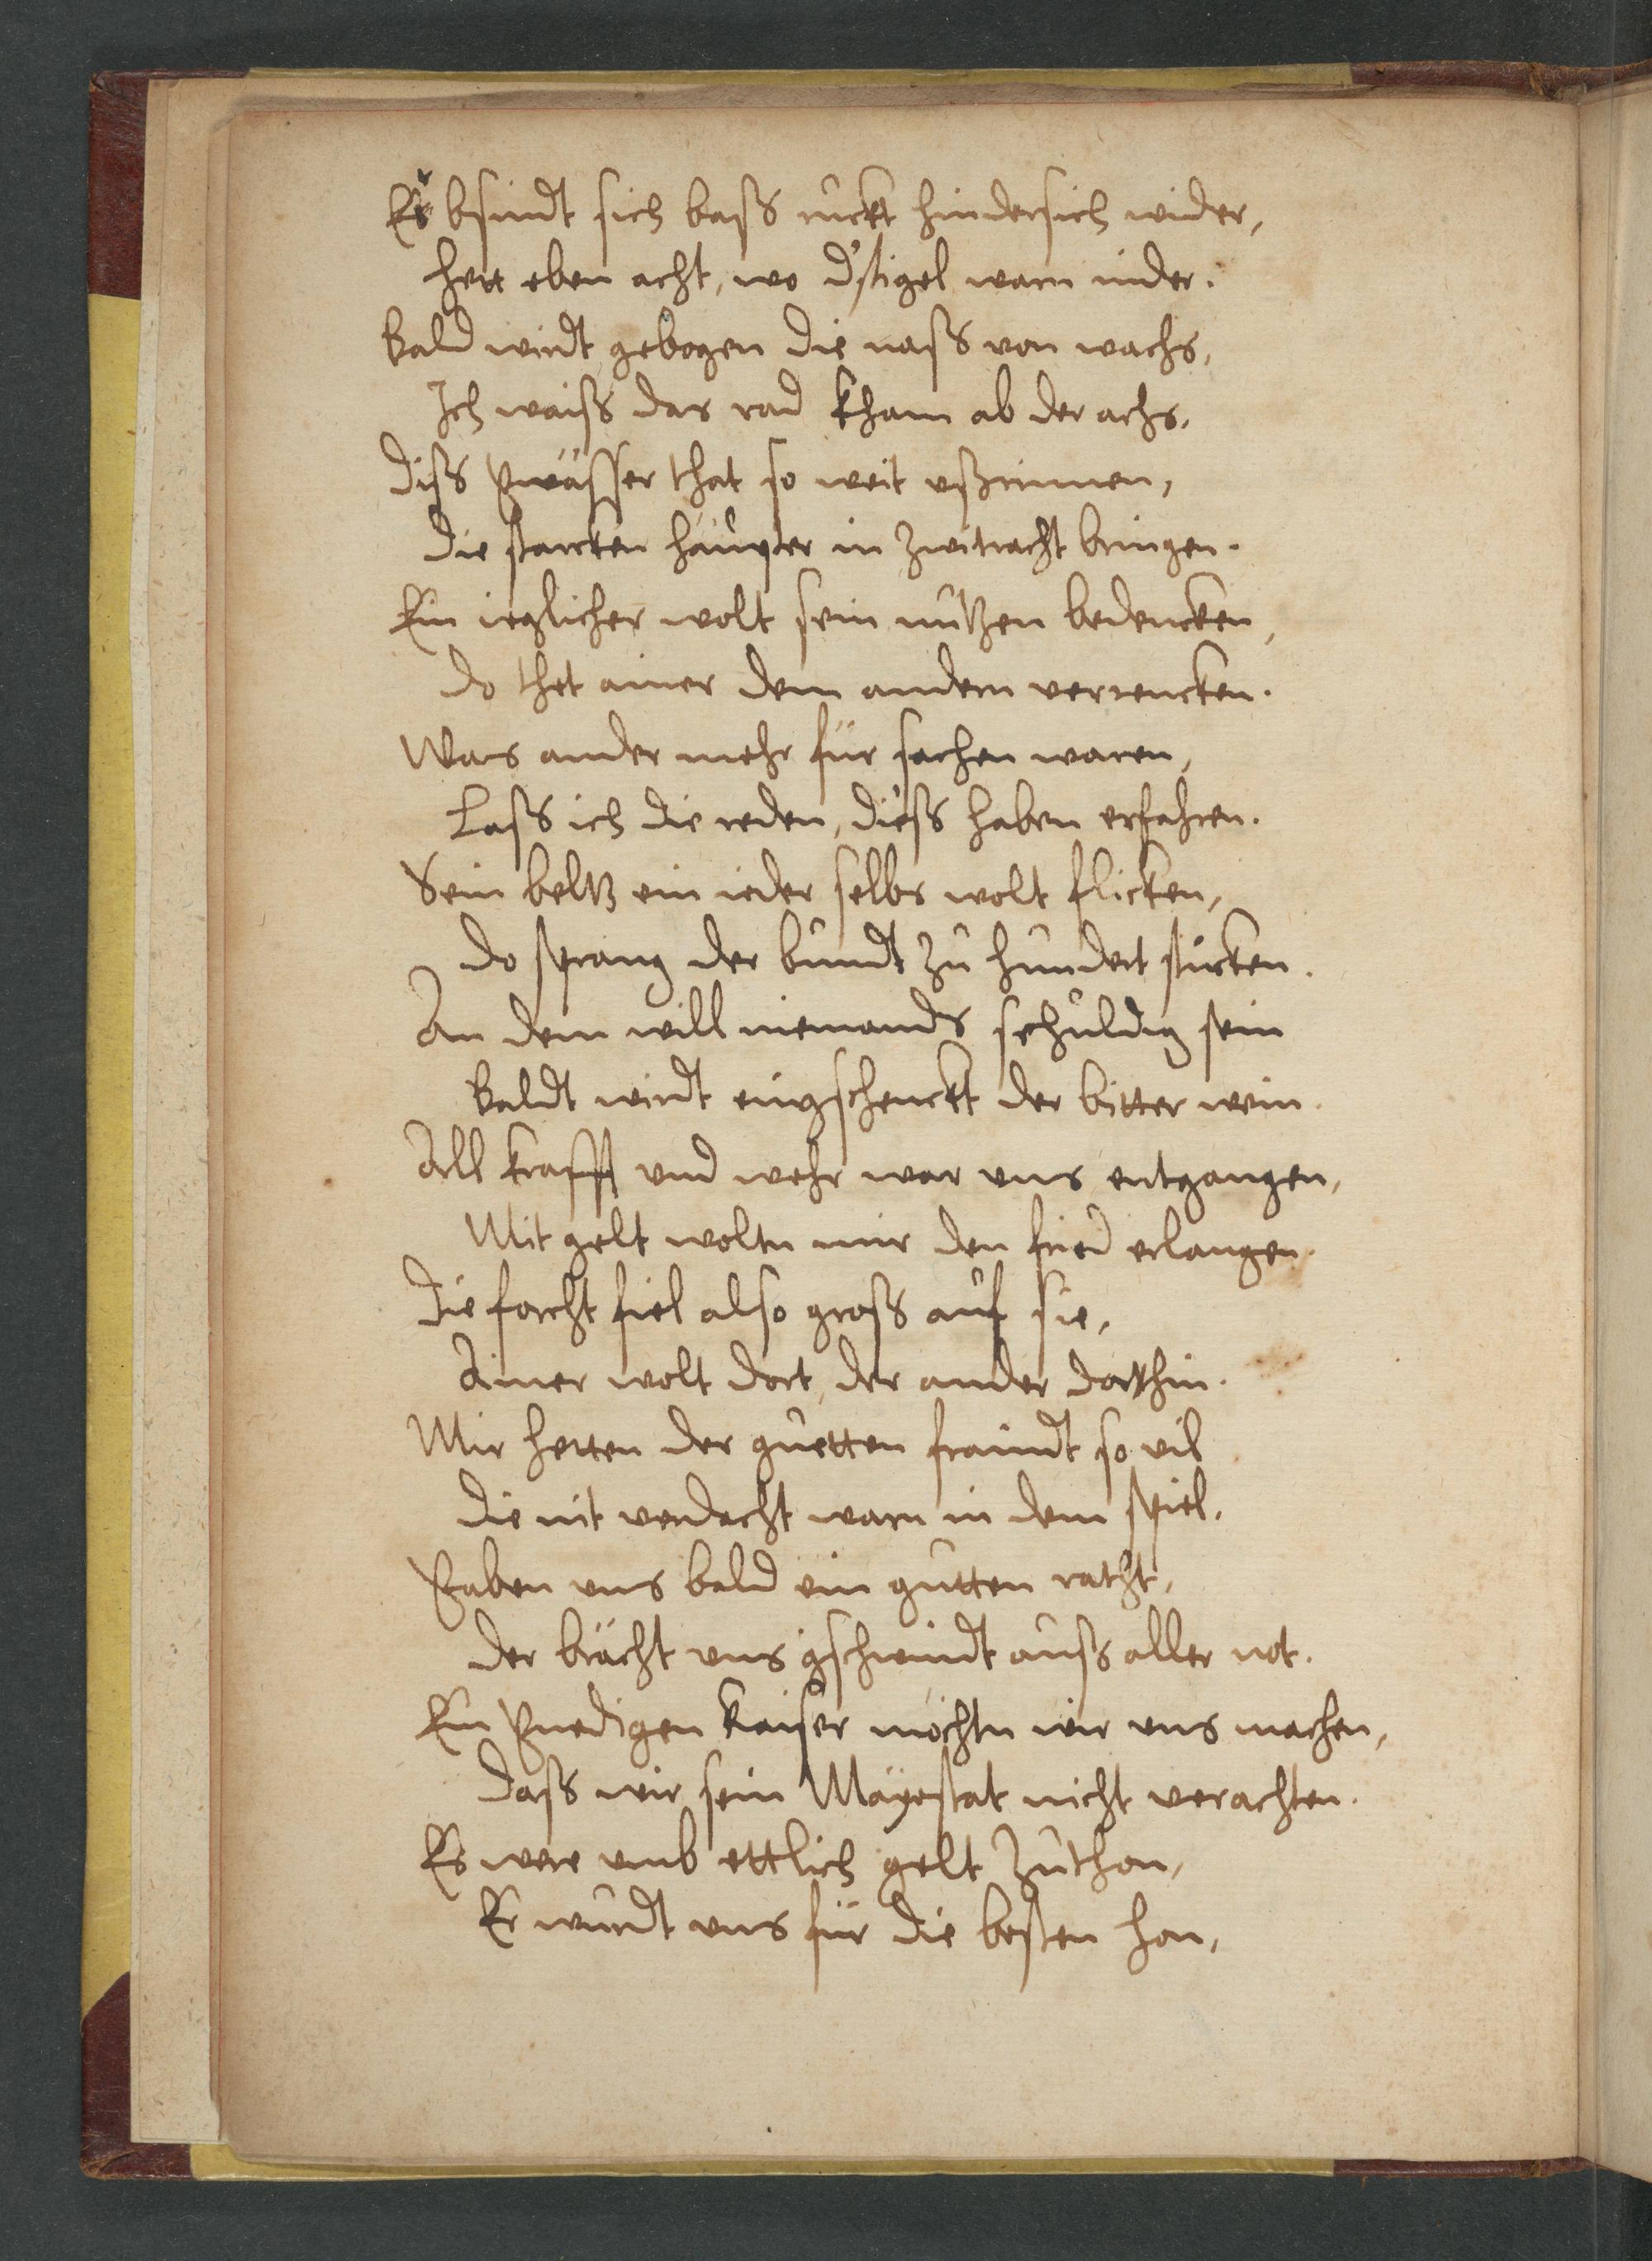 Er bsindt sich bass ruckt hindersich wider,
hett eben acht, wo d'stigel warn nider.
Bald wirdt gebogen die nass von wachs,
Ich waiss das rad kham ab der achs.
Diss Gwässer that so weit ußrinnen,
die starcken häupter in zwitracht bringen.
Ein ieglicher wolt sein nutzen bedencken,
do thet ainer dem andern verrencken.
Was ander mehr für sachen waren,
Lass ich die reden, diess haben erfahren.
Sein beltz ein ieder selbs wolt flicken,
do sprang der bundt zu hundert stucken.
An dem will niemands schuldig sein
Baldt wirdt eingschenckt der bitter wein.
All krafft und wehr war uns entgangen,
Mit gelt woltn mir den fried erlangen.
Die forcht fiel also gross auf sie,
Ainer wolt dort, der ander dorthin.
Mir hetten der guetten fraindt so vil
die nit verdacht warn in dem spiel.
Gaben uns bald ein gutten rath,
der brächt uns gschwindt auss aller not.
Ein Gnedigen Kaiser möchtn wir uns machen,
dass wir sein Mayestat nicht verachten.
Es were umb ettlich gelt zuthon,
Er wurdt uns für die besten hon,